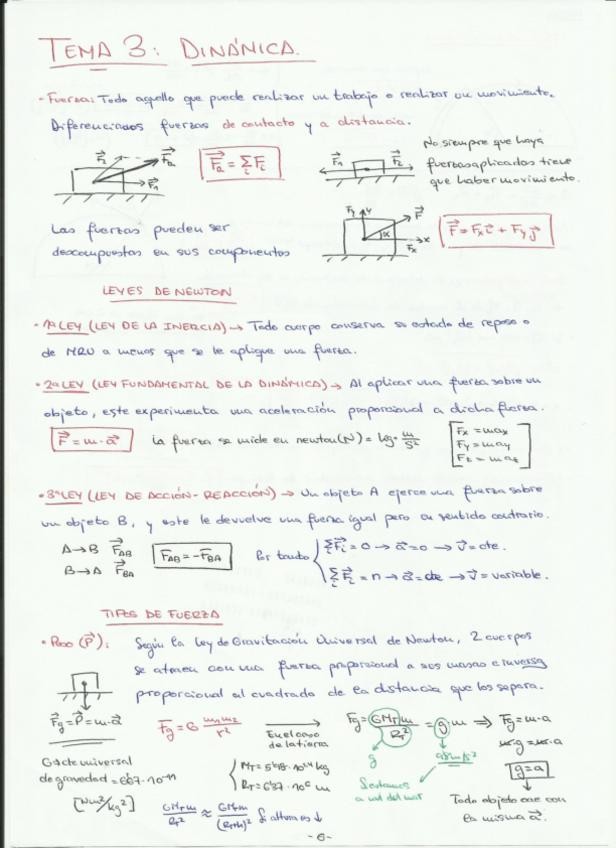 TEMA 3: DINÁMICA.
· Fuerza: Todo aquello que puede realizar un trabajo o realizar un movimiento.
Diferenciamos fuerzas de contacto y a distancia.
F₂ F_R F₁
F_R = Σ F_i
F₁ F₂
No siempre que haya
fuerzas aplicadas tiene
que haber movimiento.
Las fuerzas pueden ser
descompuestas en sus componentes
F_y y F α x F_x
F = F_x i + F_y j
LEYES DE NEWTON
· 1ª LEY (LEY DE LA INERCIA) → Todo cuerpo conserva su estado de reposo o
de MRU a menos que se le aplique una fuerza.
· 2ª LEY (LEY FUNDAMENTAL DE LA DINÁMICA) → Al aplicar una fuerza sobre un
objeto, este experimenta una aceleración proporcional a dicha fuerza.
F = m · a
La fuerza se mide en newton (N) = kg · m/s²
F_x = ma_x
F_y = ma_y
F_z = ma_z
· 3ª LEY (LEY DE ACCIÓN - REACCIÓN) → Un objeto A ejerce una fuerza sobre
un objeto B, y este le devuelve una fuerza igual pero en sentido contrario.
A → B F_AB
B → A F_BA
F_AB = -F_BA
Por tanto
Σ F_i = 0 → a = 0 → v = cte.
Σ F_i = n → a = cte → v = variable.
TIPOS DE FUERZA
· Peso (P):
Según la Ley de Gravitación Universal de Newton, 2 cuerpos
se atraen con una fuerza proporcional a sus masas e inversa
proporcional al cuadrado de la distancia que los separa.
F_g = P = m · a
F_g = G m₁m₂/r²
En el caso
de la tierra
F_g = GM_T m/R_T² = g m ⇒ F_g = m · a
m · g = m · a
g = a
g
9'8 m/s²
Estamos
a nivel del mar
Todo objeto cae con
la misma a.
G → cte universal
de gravedad = 6'67 · 10⁻¹¹
[Nm²/kg²]
M_T = 5'98 · 10²⁴ kg
R_T = 6'37 · 10⁶ m
GM_T m/R_T² ≈ GM_T m/(R_T+h)² Si altura es ↓
- 6 -